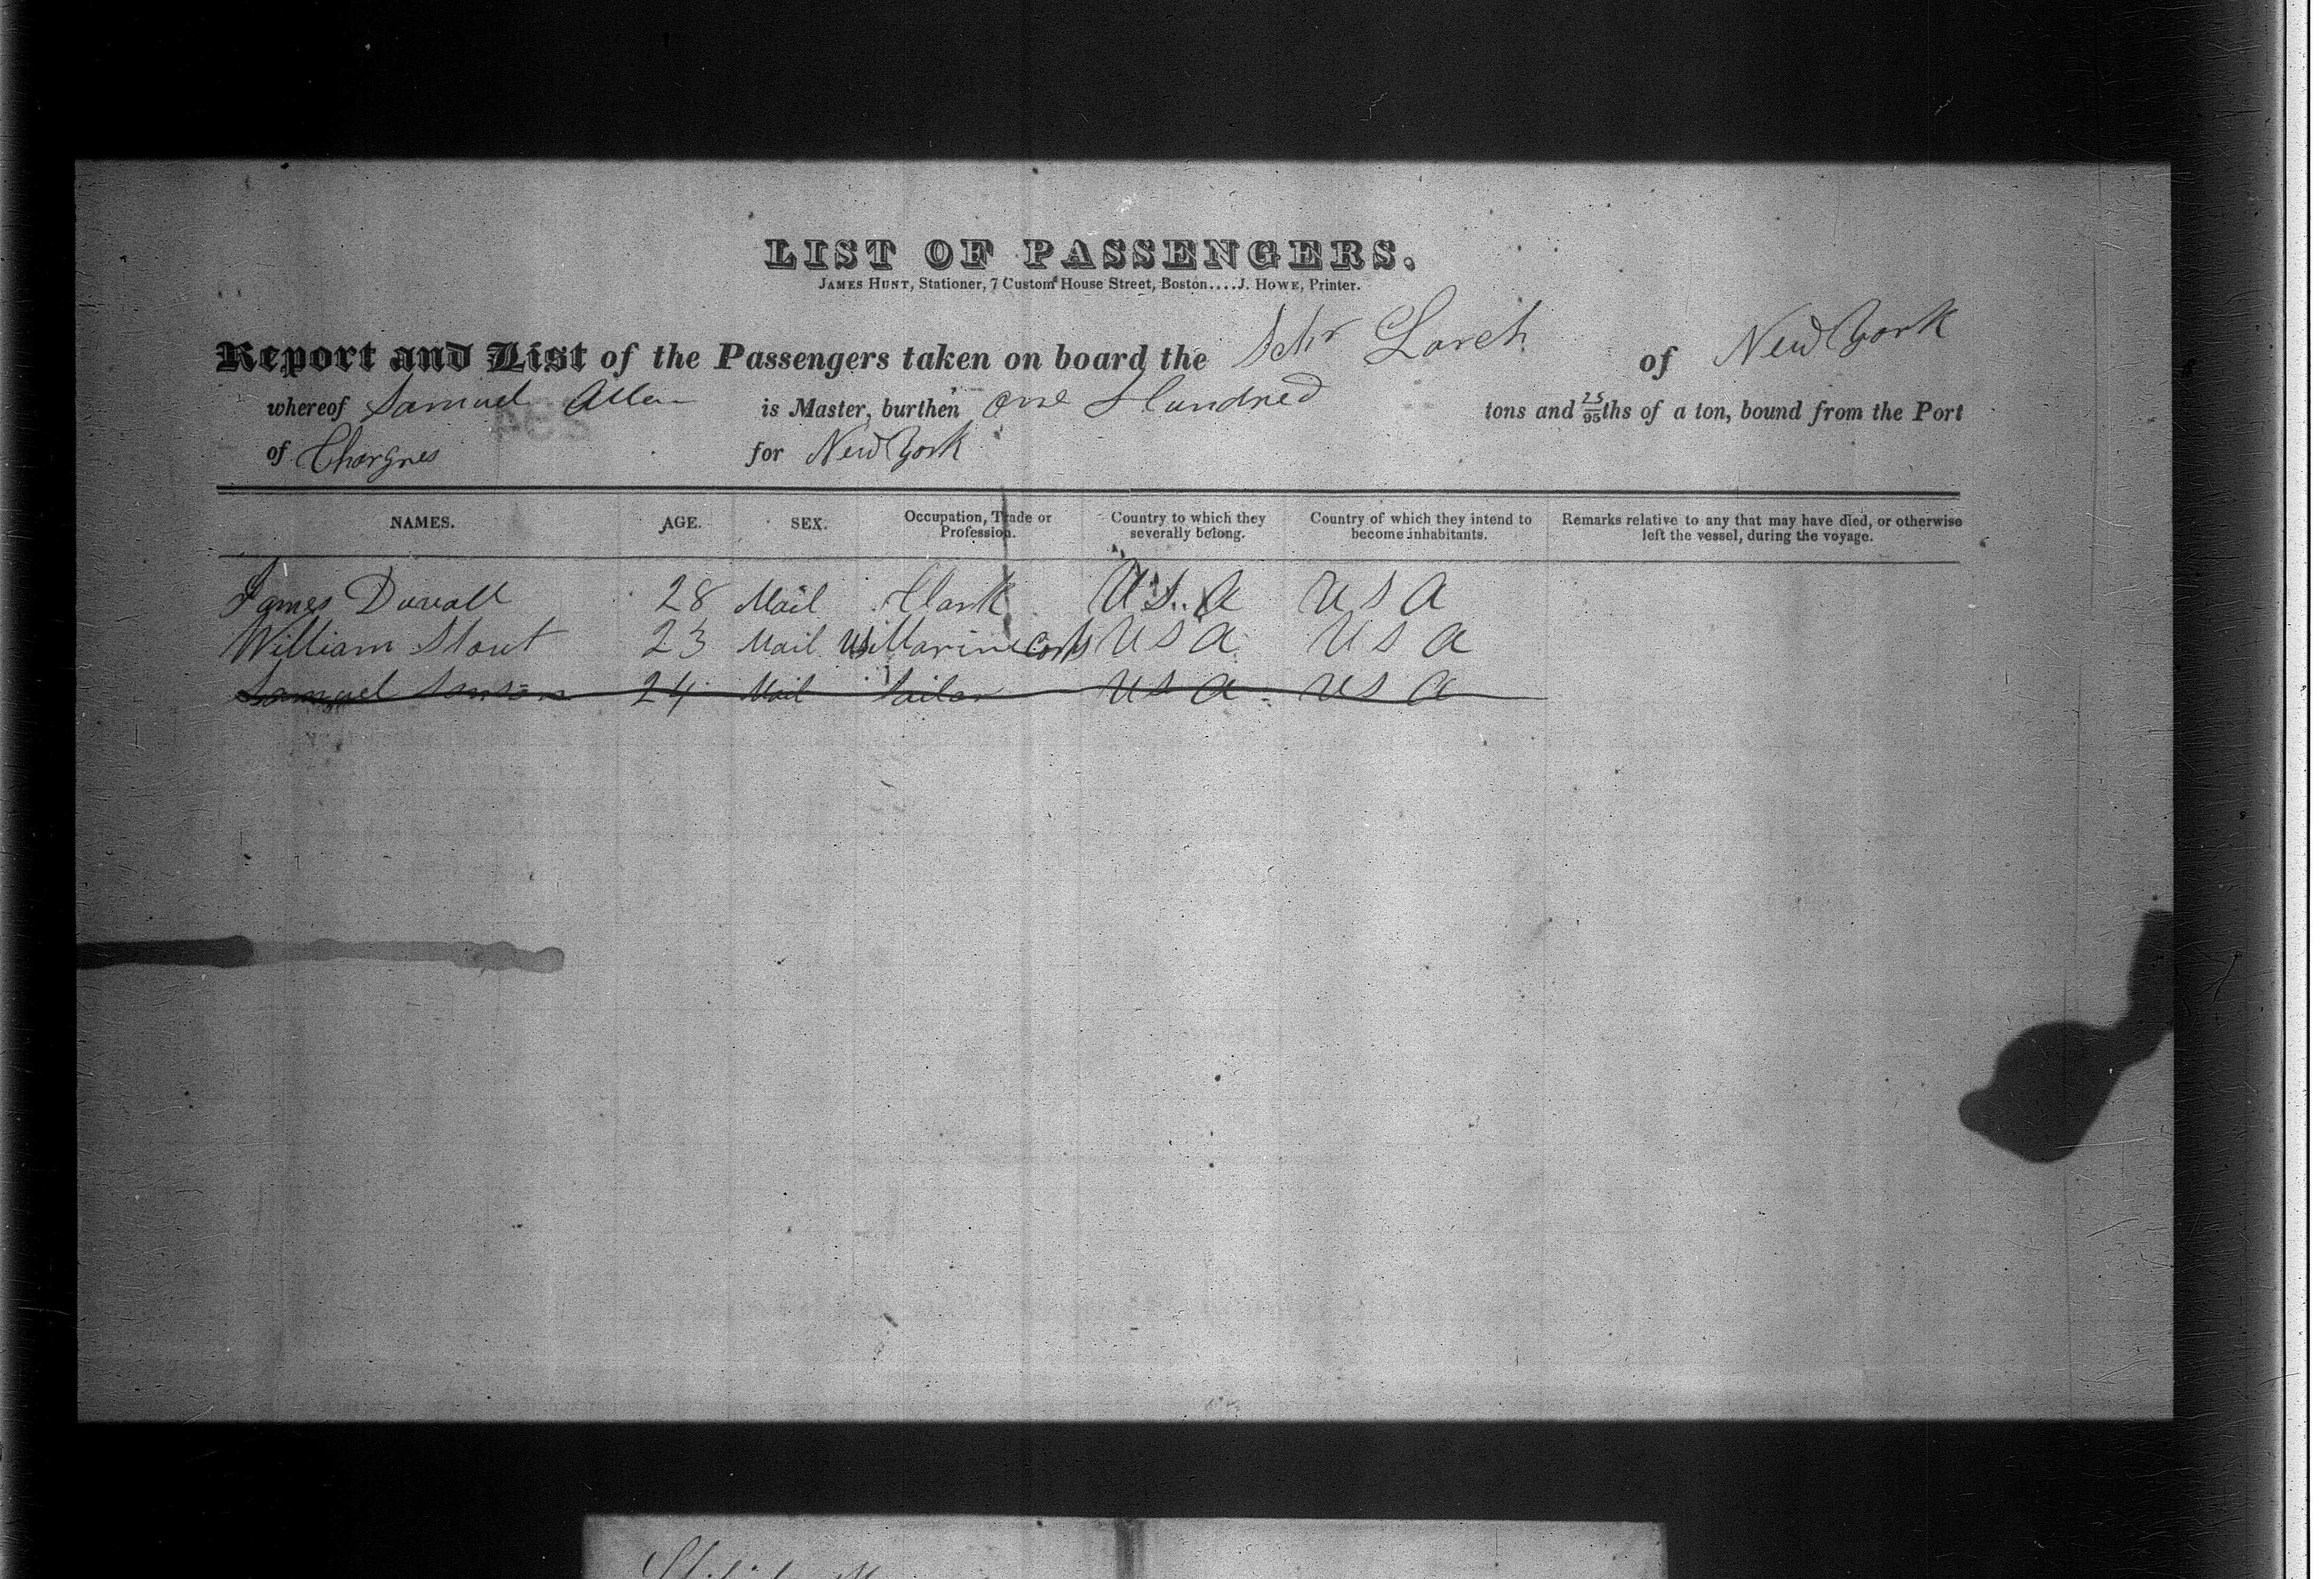 LIST OF PASSENGERS.
JAMES HUNT, Stationer, 7 Custom House Street, Boston....J. HOWE, Printer.
Report and List of the Passengers taken on board the Schr Larch of New York
whereof Samuel Allen is Master, burthen one Hundred tons and 25/95ths of a ton, bound from the Port
of Chargres for New York
NAMES. AGE. SEX. Occupation, Trade or Profession. Country to which they severally belong. Country of which they intend to become inhabitants. Remarks relative to any that may have died, or otherwise left the vessel, during the voyage.
James Duvall 28 Mail Clark U S A U S A
William Stout 23 Mail US Marine U S A U S A
Samuel 24 Mail Sailor U S A U S A